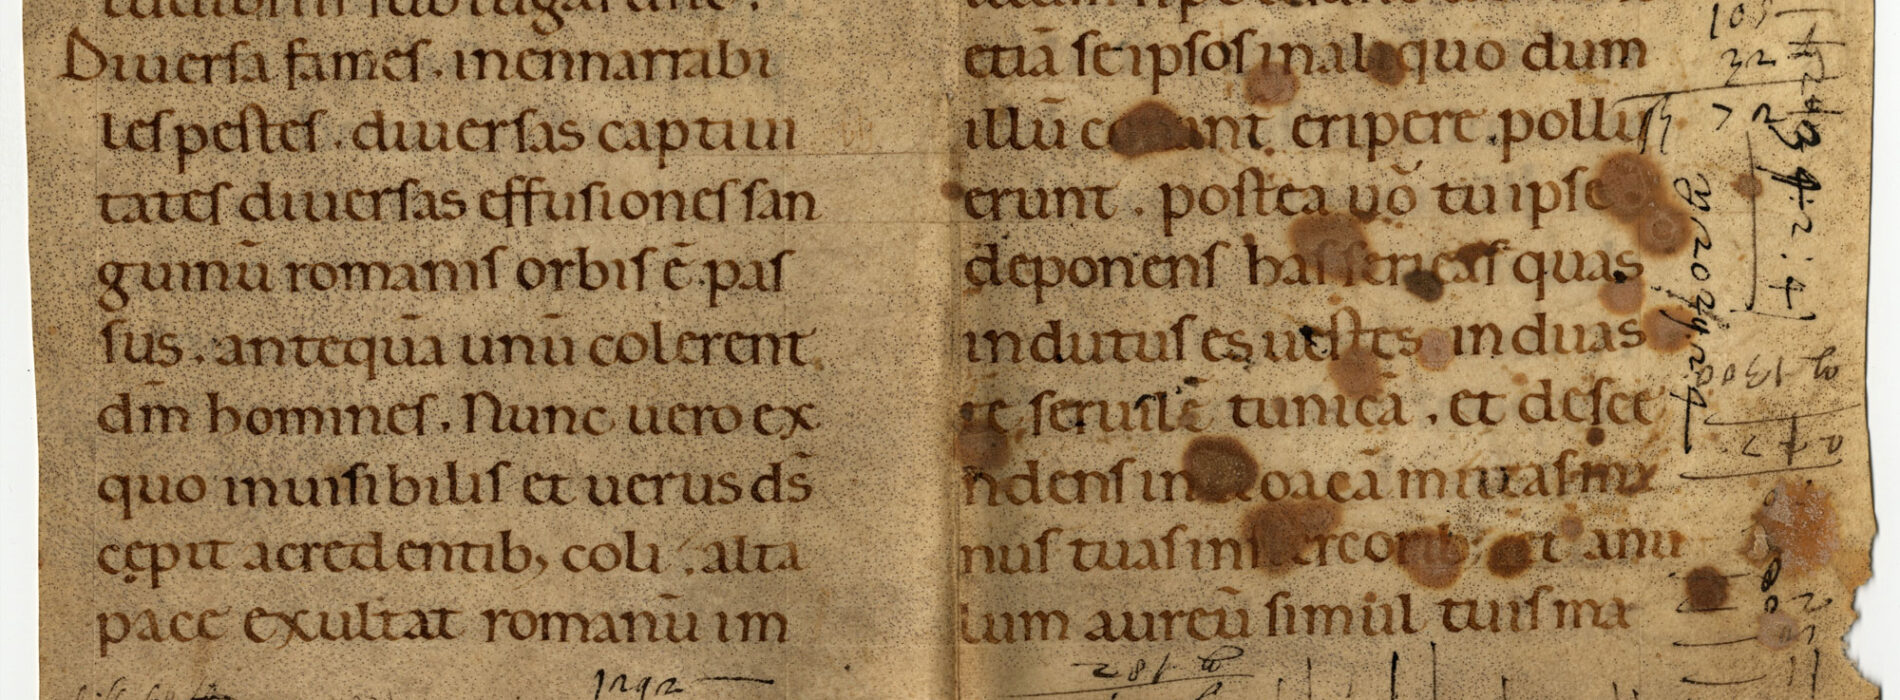 Diuersa fames. inennarrabi
les pestes. diuersas captiui
tates diuersas effusiones san
guinū romanis orbis ē. pas
sus. antequā unū colerent
dm̄ homines. Nunc uero ex
quo inuisibilis et uerus ds̄
cępit acredentib; coli. alta
pace exultat romanū im
etiā se ipsos inaliquo dum
illū ant eripere. pollu
erunt. postea uŏ tu ipse
deponens has sericas quas
indutus es uestes induas
te seruilē tunicā. et desce
ndens in cloacā mittas ma
nus tuas in stercorib; et anu
lum aureū simul tuis ma
1292
281